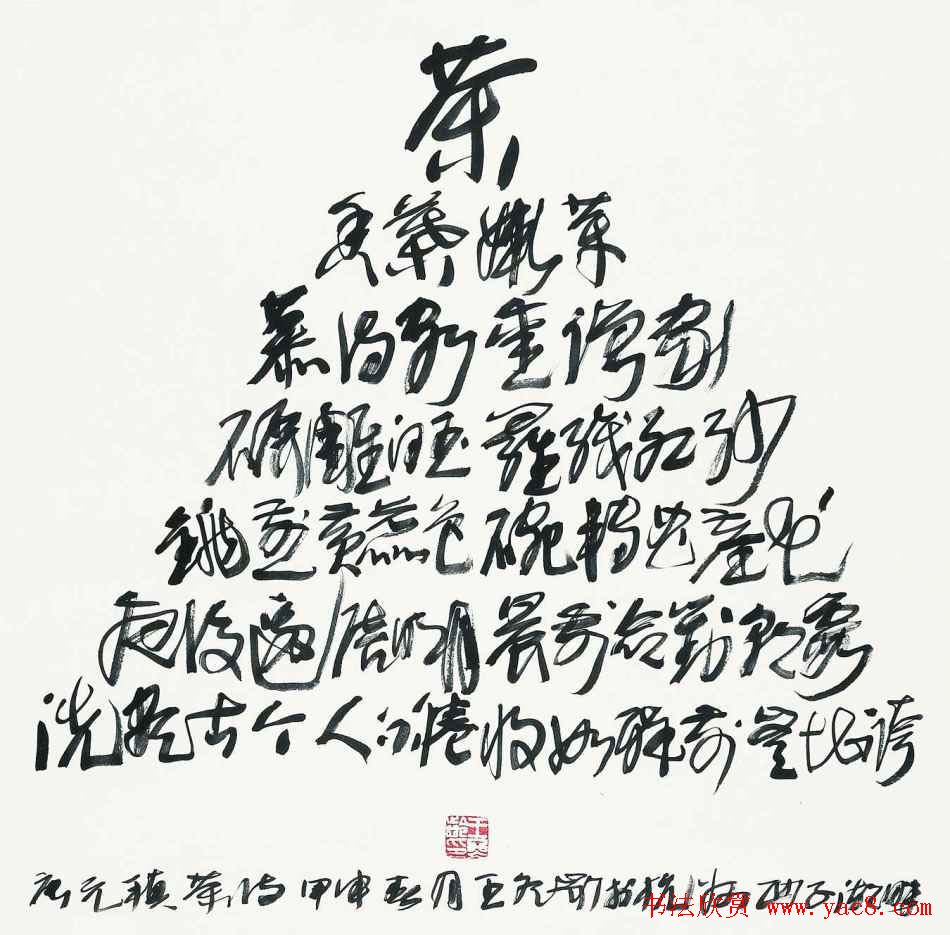 茶
香葉嫩芽
慕詩客愛僧家
碾雕白玉羅織紅紗
銚煎黃蕊色碗轉曲塵花
夜後邀陪明月晨前命對朝霞
洗盡古今人不倦將知醉前豈堪誇
王冬齡印
唐元稹茶詩甲申春月王冬齡書於西子湖畔
书法欣赏 www.yac8.com